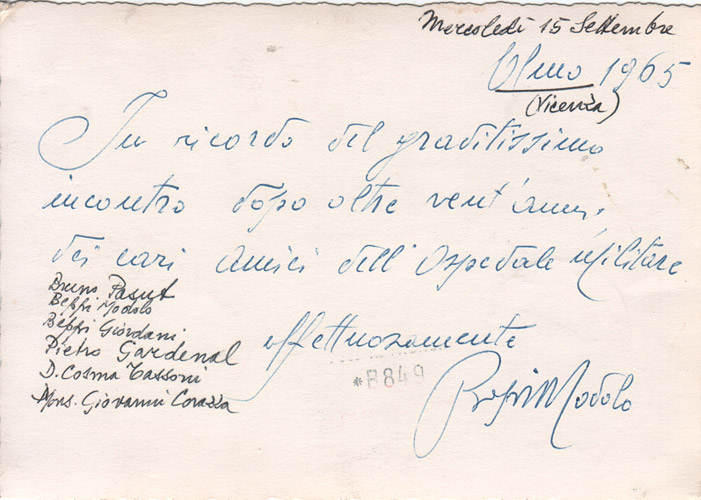 Mercoledì 15 Settembre
Olmo 1965
(Vicenza)
In ricordo del graditissimo
incontro dopo oltre vent'anni
dei cari amici dell'Ospedale Militare
Bruno Pasut
Beppi Modolo
Beppi Giordani
Pietro Gardenal
D. Cosma Tassoni
Mons. Giovanni Corazza
affettuosamente
*B849
Beppi Modolo